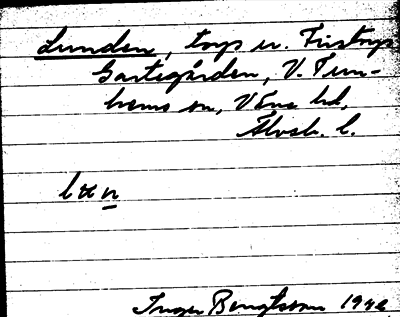 Lunden, torp u. Fristorp
Gastegården, V. Tun-
hems sn, Väne hd,
Älvsb. l.
Inger Bengtsson